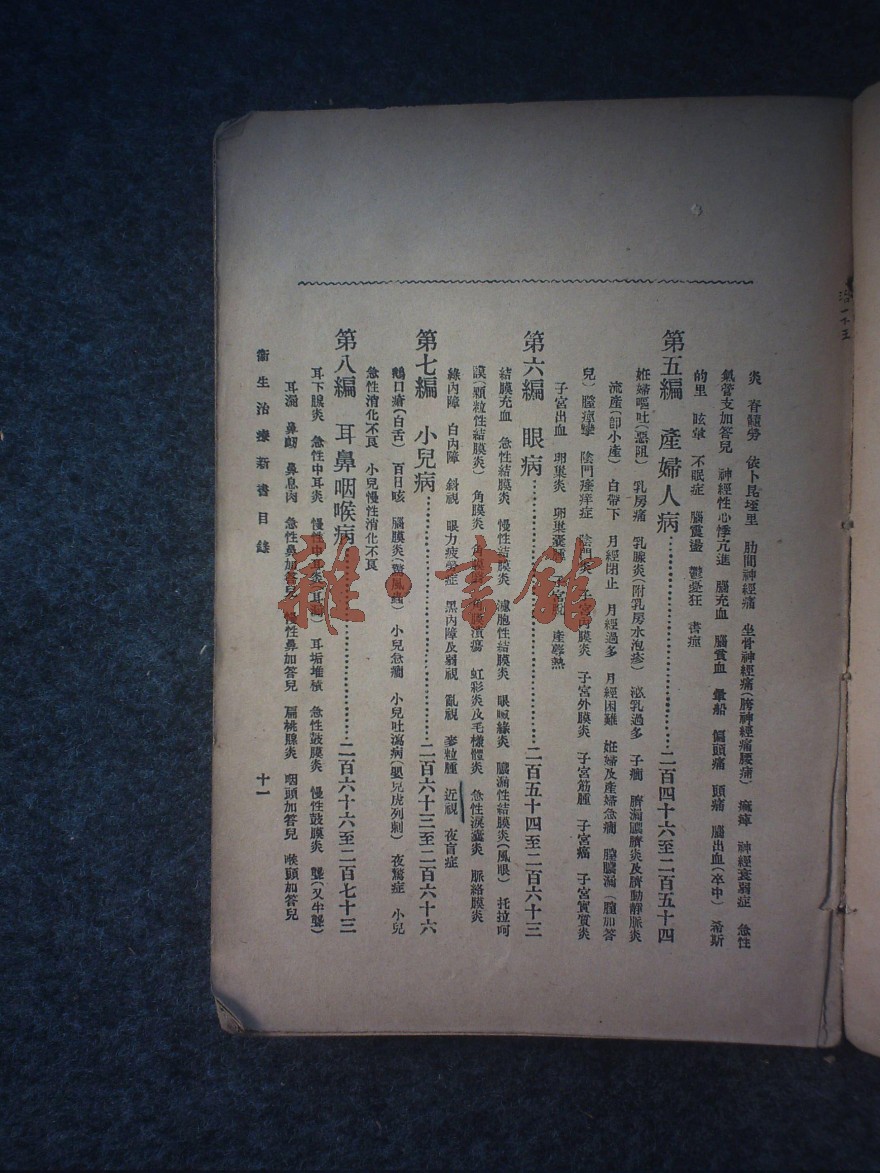 炎　脊髓勞　依卜昆垤里　肋間神經痛　坐骨神經痛(胯神經痛腰痛)　癱瘓　神經衰弱症　急性
氣管支加答兒　神經性心悸亢進　腦充血　腦貧血　暈船　偏頭痛　頭痛　腦出血(卒中)　希斯
的里　咳嗽　不眠症　腦震盪　鬱憂狂　書痙
第五編　產婦人病……二百四十六至二百五十四
姙婦嘔吐(惡阻)　乳房痛　乳腺炎(附乳房水泡疹)　泌乳過多　子癇　臍漏膿臍炎及臍動靜脈炎
流產(卽小產)　白帶下　月經閉止　月經過多　月經困難　姙婦及產婦急癇　膣膿漏(膣加答
兒)　膣痙攣　陰門瘙痒症　陰門炎　子宮內膜炎　子宮外膜炎　子宮筋腫　子宮癌　子宮實質炎
子宮出血　卵巢炎　卵巢囊腫　子宮脫　產褥熱
第六編　眼病……二百五十四至二百六十三
結膜充血　急性結膜炎　慢性結膜炎　濾胞性結膜炎　眼瞼緣炎　膿漏性結膜炎(風眼)　托拉呵
謨(顆粒性結膜炎)　角膜炎　角膜潰瘍　虹彩炎及毛樣體炎　急性淚囊炎　脈絡膜炎
綠內障　白內障　斜視　眼力疲勞症　黑內障及弱視　亂視　麥粒腫　近視　夜盲症
第七編　小兒病……二百六十三至二百六十六
鵝口瘡(白舌)　百日咳　腦膜炎(驚風蟲)　小兒急癇　小兒吐瀉病(嬰兒虎列剌)　夜驚症　小兒
急性消化不良　小兒慢性消化不良
第八編　耳鼻咽喉病……二百六十六至二百七十三
耳下腺炎　急性中耳炎　慢性中耳炎(耳漏)　耳垢堆積　急性鼓膜炎　慢性鼓膜炎　聾(又半聾)
耳漏　鼻衄　鼻息肉　急性鼻加答兒　慢性鼻加答兒　扁桃腺炎　咽頭加答兒　喉頭加答兒
衞生治療新書目錄　十一
雜·書館